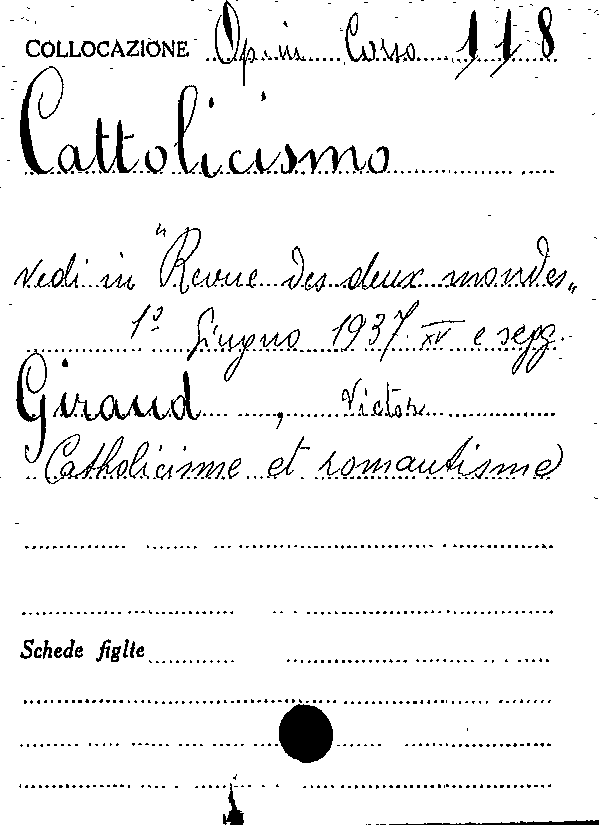 COLLOCAZIONE Op. in Corso 118
Cattolicismo
vedi in "Revue des deux mondes„
1º Giugno 1937 XV e segg.
Giraud, Victor
Catholicisme et romantisme
Schede figlie